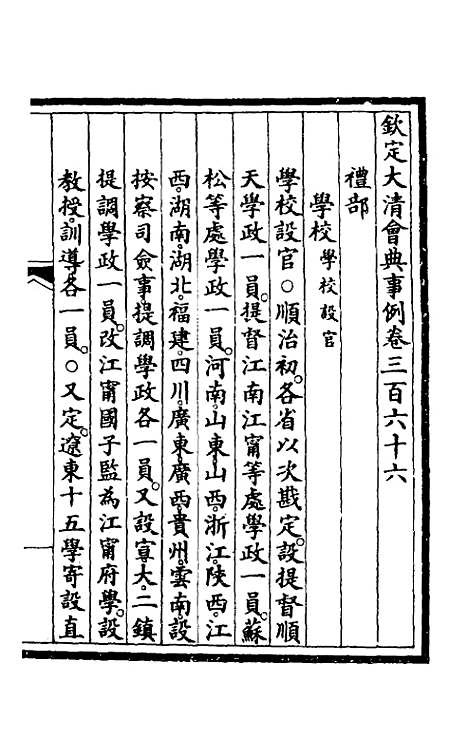 欽定大清會典事例卷三百六十六
禮部
學校學校設官
學校設官○順治初。各省以次戡定。設提督順
天學政一員。提督江南江甯等處學政一員。蘇
松等處學政一員。河南。山東。山西。浙江。陝西。江
西。湖南。湖北。福建。四川。廣東。廣西。貴州。雲南。設
按察司僉事提調學政各一員。又設宣大。二鎮
提調學政一員。改江甯國子監為江甯府學。設
教授。訓導各一員。○又定。遼東十五學寄設直